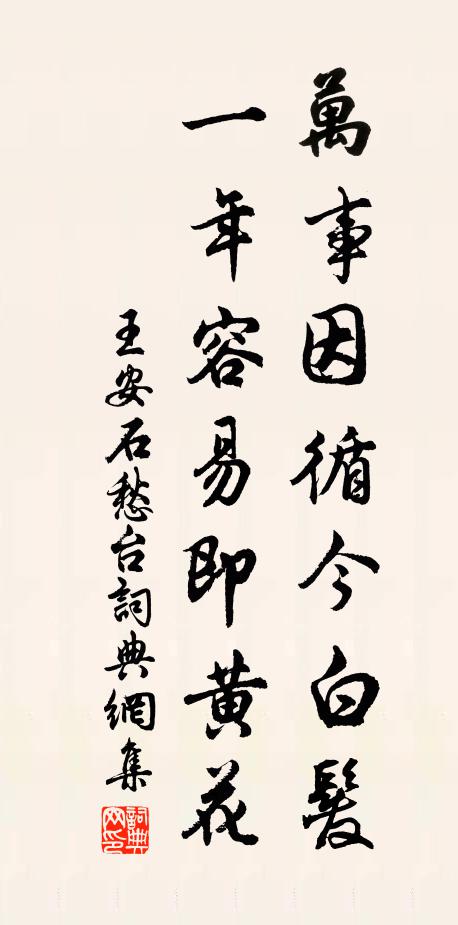 萬事因循今白髮
一年容易即黃花
王安石愁台詞典網集
詞典
网印